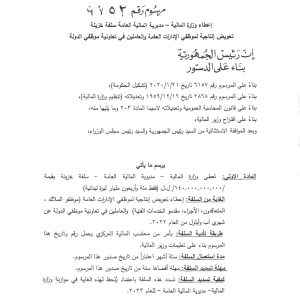 مرسوم رقم ٩٧٥٢
إعطاء وزارة المالية – مديرية المالية العامة سلفة خزينة
تعويض إنتاجية لموظفي الإدارات العامة والعاملين في تعاونية موظفي الدولة
إن رئيس الجمهورية
بناء على الدستور
بناءً على المرسوم رقم ٦١٥٧ تاريخ ٢٠٢٠/١/٢١ (تشكيل الحكومة)،
بناءً على المرسوم رقم ٢٨٦٨ تاريخ ١٩٥٩/١٢/١٦ وتعديلاته (تنظيم وزارة المالية)،
بناءً على قانون المحاسبة العمومية وتعديلاته لاسيما المادة ٢٠٣ وما يليها منه،
بناءً على اقتراح وزير المالية،
وبعد الموافقة الاستثنائية من السيد رئيس الجمهورية والسيد رئيس مجلس الوزراء،
يرسم ما يأتي
المادة الأولى: تعطى وزارة المالية – مديرية المالية العامة – سلفة خزينة بقيمة
/١٤٠،٠٠٠،٠٠٠،٠٠٠/ ل.ل (فقط مئة وأربعون مليار ليرة لبنانية)
الغاية من السلفة: إعطاء تعويض إنتاجية لموظفي الإدارات العامة (موظفو الملاك،
المتعاقدون، الأجراء، مقدمو الخدمات الفنية) والعاملين في تعاونية موظفي الدولة عن
شهري آب وأيلول من العام ٢٠٢٢.
طريقة تأدية السلفة: بأمر من محتسب المالية المركزي يحمل رقم وتاريخ هذا
المرسوم بناء على تعليمات وزير المالية.
مدة استعمال السلفة: مدة ستة أشهر اعتباراً من تاريخ صدور هذا المرسوم.
مهلة تسديد السلفة: مهلة أقصاها سنة من تاريخ صدور هذا المرسوم.
كيفية تسديد السلفة: تسدد هذه السلفة باعتماد يُلحظ لهذه الغاية في موازنة وزارة
المالية- مديرية المالية العامة – للعام ٢٠٢٣.